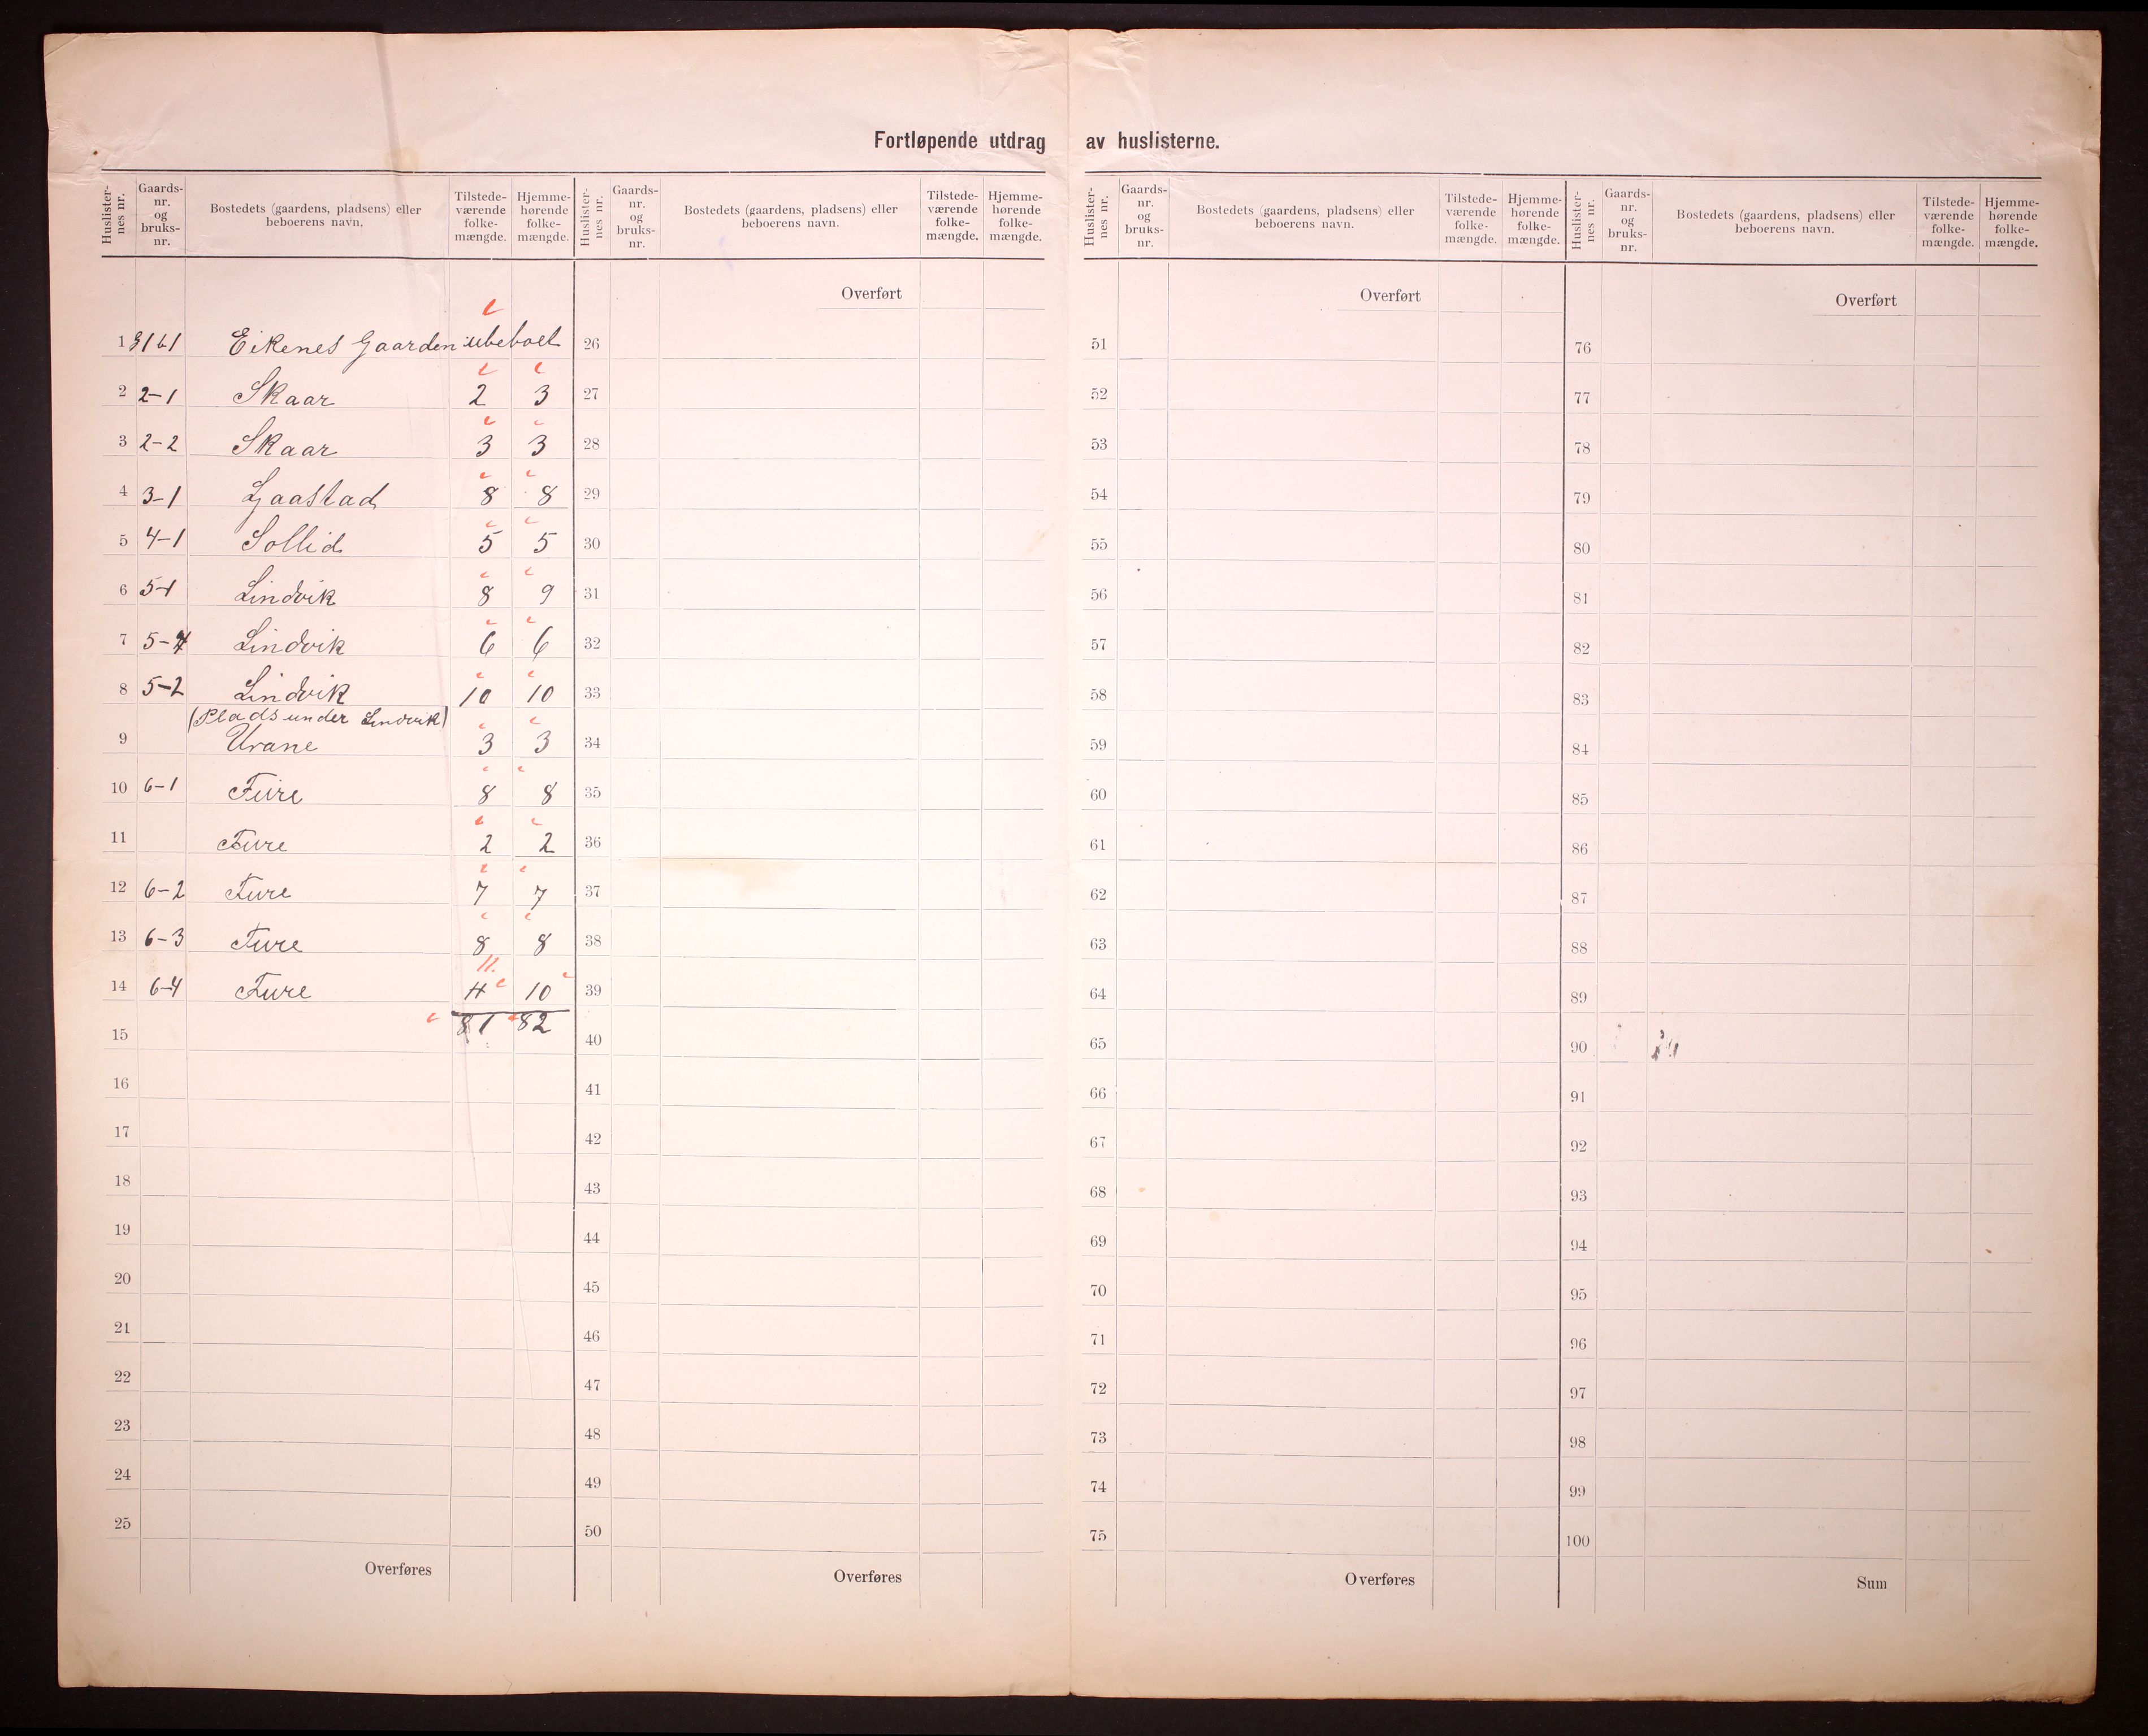 Fortløpende utdrag av huslisterne.
Huslister-nes nr. Gaards-nr. og bruks-nr. Bostedets (gaardens, pladsens) eller beboerens navn. Tilstede-værende folke-mængde. Hjemme-hørende folke-mængde.
1 Eikenes Gaarden ubeboet
2 2-1 Skaar 2 3
3 2-2 Skaar 3 3
4 3-1 Gaastad 8 8
5 4-1 Sollid 5 5
6 5-1 Lindvik 8 9
7 5-4 Lindvik 6 6
8 5-2 Lindvik 10 10
(Plads under Lindvik)
9 Urane 3 3
10 6-1 Fure 8 8
11 Fure 2 2
12 6-2 Fure 7 7
13 6-3 Fure 8 8
11.
14 6-4 Fure 10
81 82
15
16
17
18
19
20
21
22
23
24
25
Overføres
Huslister-nes nr. Gaards-nr. og bruks-nr. Bostedets (gaardens, pladsens) eller beboerens navn. Tilstede-værende folke-mængde. Hjemme-hørende folke-mængde.
Overført
26
27
28
29
30
31
32
33
34
35
36
37
38
39
40
41
42
43
44
45
46
47
48
49
50
Overføres
Huslister-nes nr. Gaards-nr. og bruks-nr. Bostedets (gaardens, pladsens) eller beboerens navn. Tilstede-værende folke-mængde. Hjemme-hørende folke-mængde.
Overført
51
52
53
54
55
56
57
58
59
60
61
62
63
64
65
66
67
68
69
70
71
72
73
74
75
Overføres
Huslister-nes nr. Gaards-nr. og bruks-nr. Bostedets (gaardens, pladsens) eller beboerens navn. Tilstede-værende folke-mængde. Hjemme-hørende folke-mængde.
Overført
76
77
78
79
80
81
82
83
84
85
86
87
88
89
90
91
92
93
94
95
96
97
98
99
100
Sum